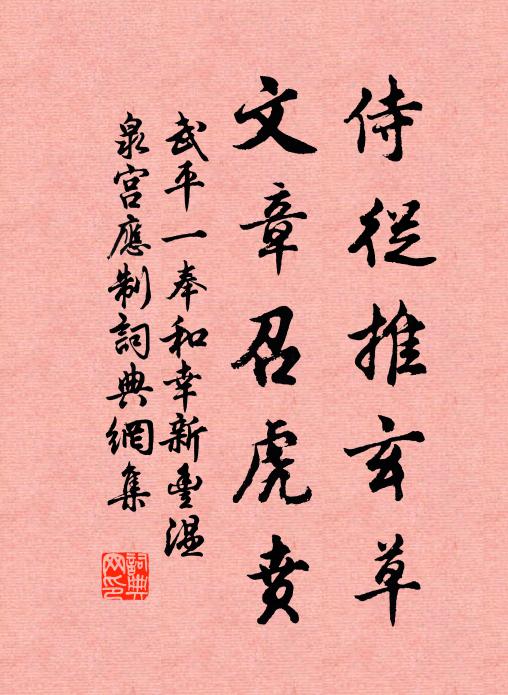 侍從推玄草
文章召虎賁
武平一奉和幸新豐溫
泉宮應制詞典網集
詞典網印